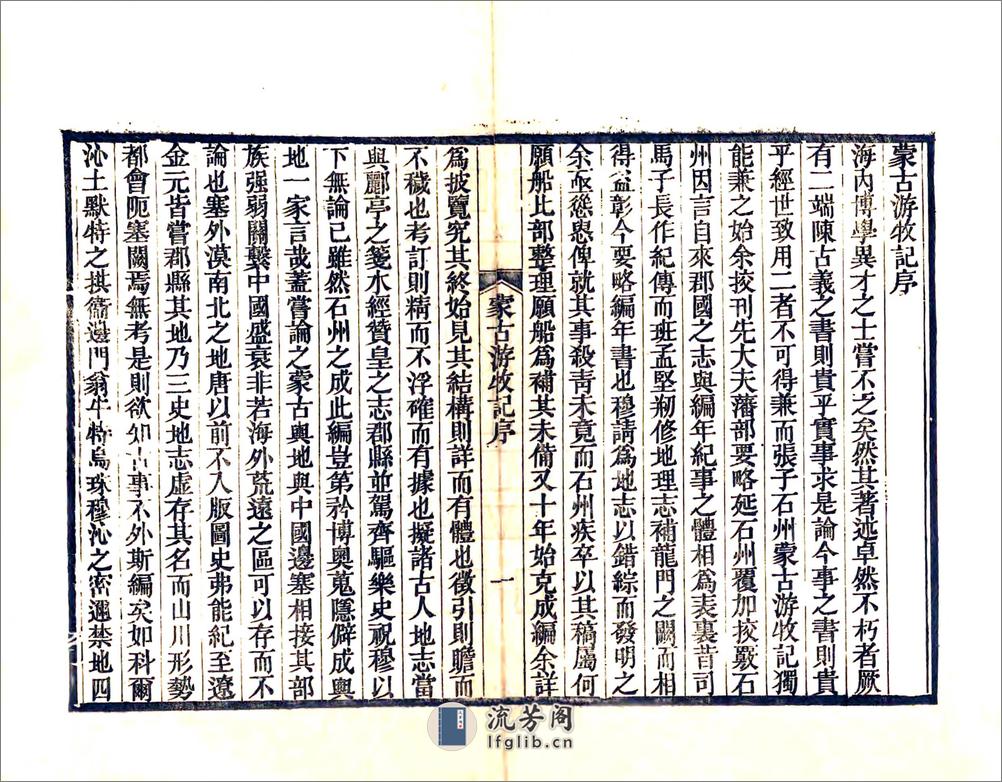 蒙古游牧記序
海內博學異才之士嘗不乏矣然其著述卓然不朽者厥
有二端陳古義之書則貴乎實事求是論今事之書則貴
乎經世致用二者不可得兼而張子石州蒙古游牧記獨
能兼之始余挍刊先大夫藩部要略延石州覆加挍覈石
州因言自來郡國之志與編年紀事之體相為表裏昔司
馬子長作紀傳而班孟堅剏修地理志補龍門之闕而相
得益彰今要略編年書也穆請為地志以錯綜而發明之
余亟慫恿俾就其事殺青未竟而石州疾卒以其稿屬何
願船比部整理願船為補其未備又十年始克成編余詳
蒙古游牧記序 一
為披覽究其終始見其結構則詳而有體也徵引則贍而
不穢也考訂則精而不浮確而有據也擬諸古人地志當
與酈亭之箋水經贊皇之志郡縣並駕齊驅樂史祝穆以
下無論已雖然石州之成此編豈第矜博奧蒐隱僻成輿
地一家言哉蓋嘗論之蒙古輿地與中國邊塞相接其部
族强弱關繫中國盛衰非若海外荒遠之區可以存而不
論也塞外漠南北之地唐以前不入版圖史弗能紀至遼
金元皆嘗郡縣其地乃三史地志虛存其名而山川形勢
都會阨塞闕焉無考是則欲知古事不外斯編矣如科爾
沁土默特之拱衞邊門翁牛特烏珠穆沁之密邇禁地四
流芳阁
lfglib.cn